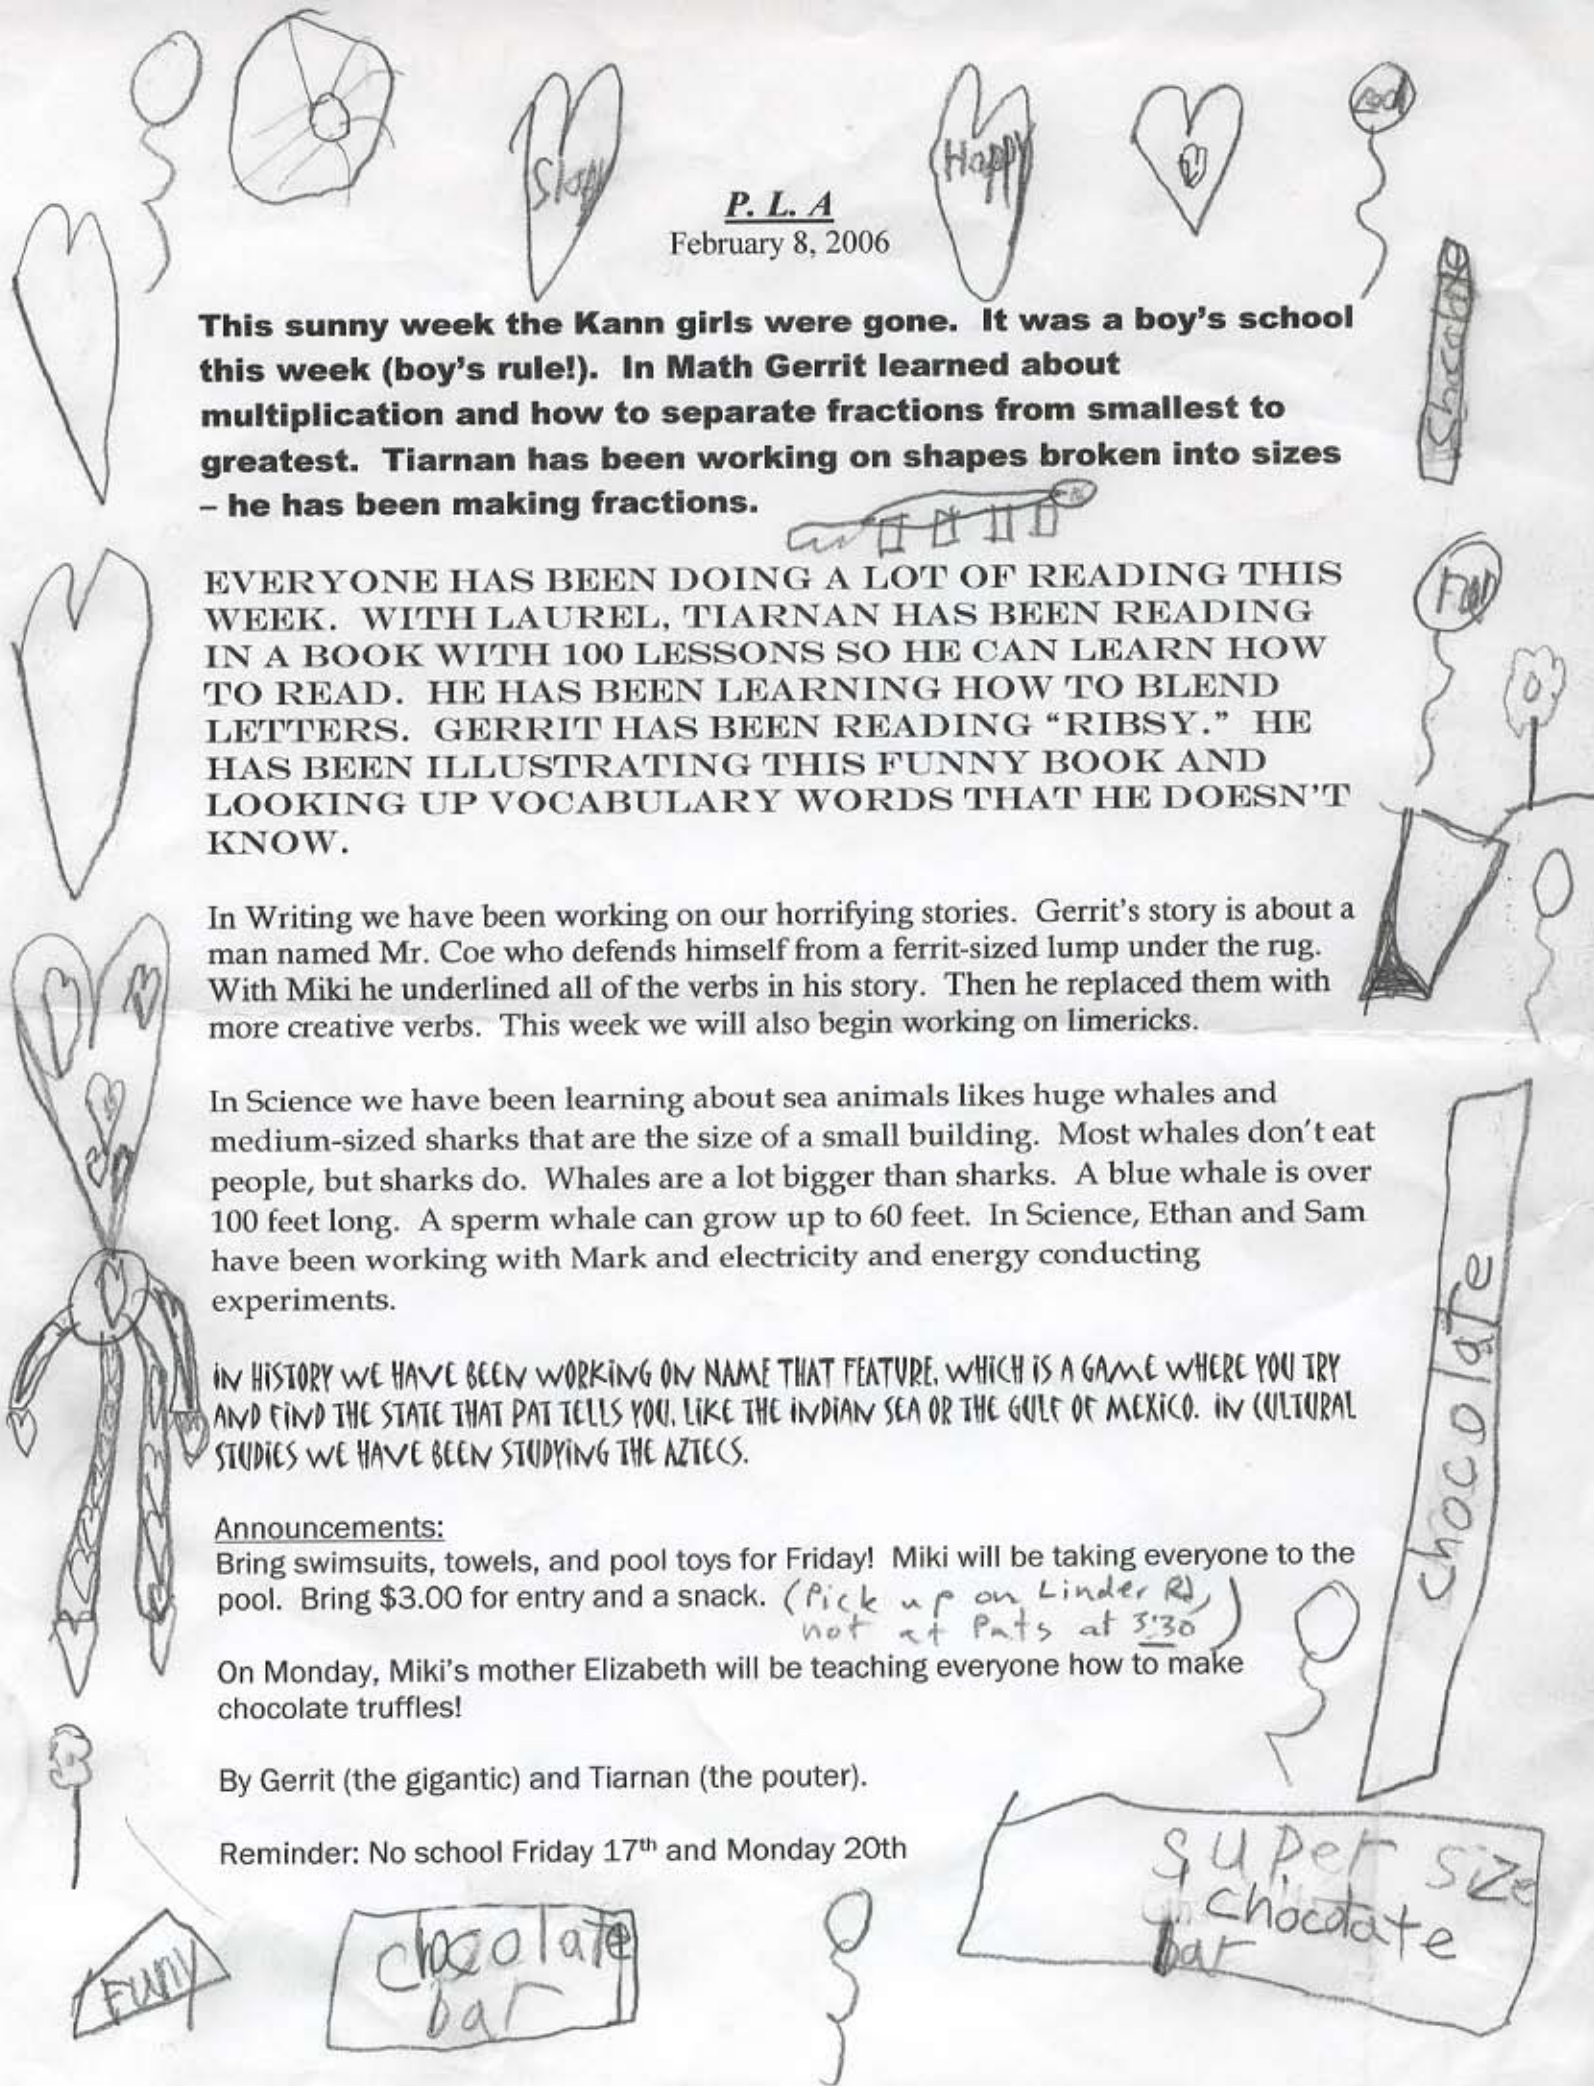 Happy
P. L. A
February 8, 2006
This sunny week the Kann girls were gone. It was a boy's school
this week (boy's rule!). In Math Gerrit learned about
multiplication and how to separate fractions from smallest to
greatest. Tiarnan has been working on shapes broken into sizes
– he has been making fractions.
EVERYONE HAS BEEN DOING A LOT OF READING THIS
WEEK. WITH LAUREL, TIARNAN HAS BEEN READING
IN A BOOK WITH 100 LESSONS SO HE CAN LEARN HOW
TO READ. HE HAS BEEN LEARNING HOW TO BLEND
LETTERS. GERRIT HAS BEEN READING “RIBSY.” HE
HAS BEEN ILLUSTRATING THIS FUNNY BOOK AND
LOOKING UP VOCABULARY WORDS THAT HE DOESN'T
KNOW.
Fun
In Writing we have been working on our horrifying stories. Gerrit's story is about a
man named Mr. Coe who defends himself from a ferrit-sized lump under the rug.
With Miki he underlined all of the verbs in his story. Then he replaced them with
more creative verbs. This week we will also begin working on limericks.
In Science we have been learning about sea animals likes huge whales and
medium-sized sharks that are the size of a small building. Most whales don't eat
people, but sharks do. Whales are a lot bigger than sharks. A blue whale is over
100 feet long. A sperm whale can grow up to 60 feet. In Science, Ethan and Sam
have been working with Mark and electricity and energy conducting
experiments.
IN HISTORY WE HAVE BEEN WORKING ON NAME THAT FEATURE, WHICH IS A GAME WHERE YOU TRY
AND FIND THE STATE THAT PAT TELLS YOU, LIKE THE INDIAN SEA OR THE GULF OF MEXICO. IN CULTURAL
STUDIES WE HAVE BEEN STUDYING THE AZTECS.
chocolate
Announcements:
Bring swimsuits, towels, and pool toys for Friday! Miki will be taking everyone to the
pool. Bring $3.00 for entry and a snack. (Pick up on Linder Rd,
not at Pats at 3:30)
On Monday, Miki's mother Elizabeth will be teaching everyone how to make
chocolate truffles!
By Gerrit (the gigantic) and Tiarnan (the pouter).
Reminder: No school Friday 17th and Monday 20th
super size
chocolate
bar
Funy
chocolate
bar